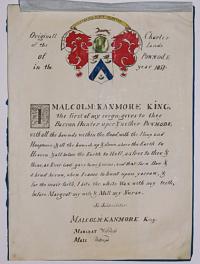 Originall Charter
of the Lands
of POWMODE
in the year 1057.
I MALCOLM KANMORE KING,
the first of my reign, gives to thee
Barron Hunter upper & nether POWMODE,
with all the bounds within the flood, with the Hoop and
Hooptown, & all the bounds up & down, above the Earth to
Heaven, & all below the Earth to Hell, as free to thee &
thine, as Ever God gave to me & mine, and that for a Bow &
a broad Arrow, when I come to hunt upon yarrow, &
for the mair suith, I bite the white Wax with my teeth,
before Margret my wife & Mall my Nurse.
Sic Subscribitur
MALCOLM KANMORE King.
MARGRET Witness
MALL Witness